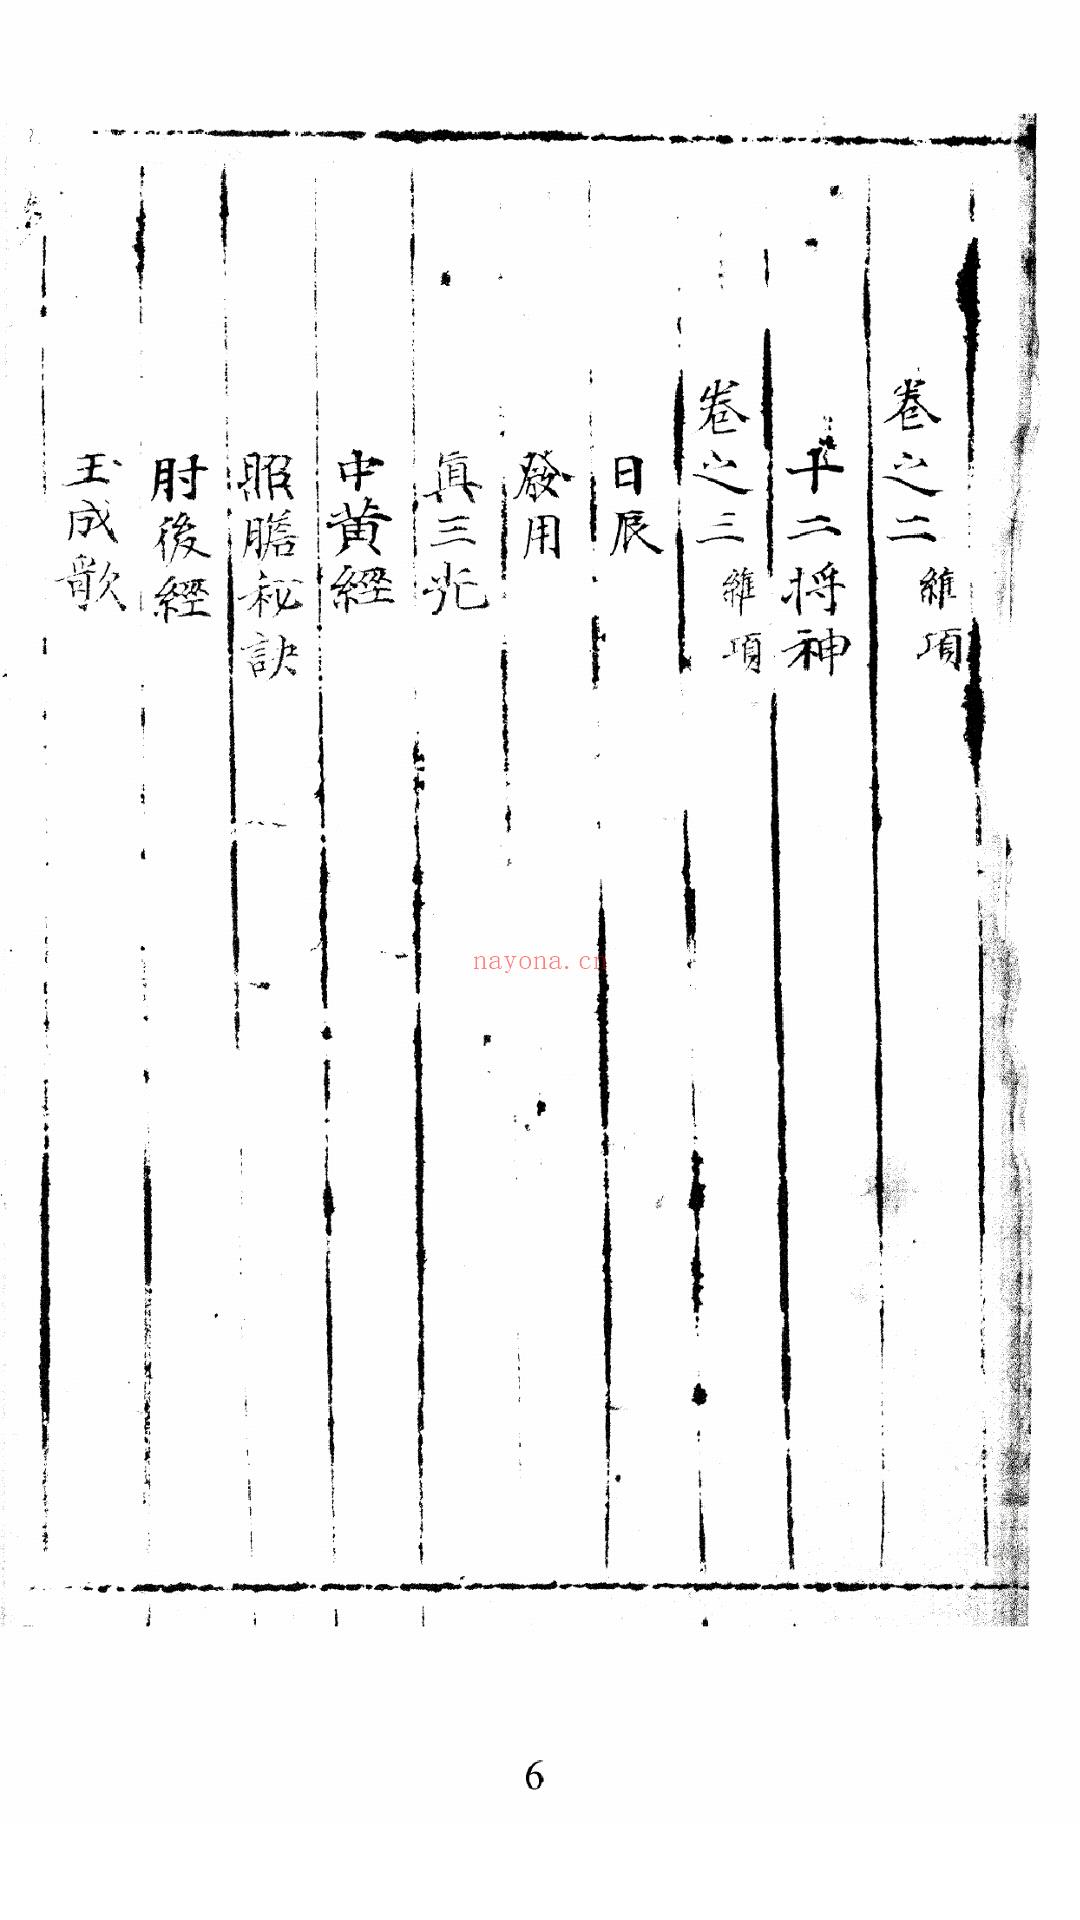 卷之二 維項
十二將神
卷之三 維項
日辰
發用
眞三光
中黄經
照膽秘訣
肘後經
玉成歌
nayona.cn
6